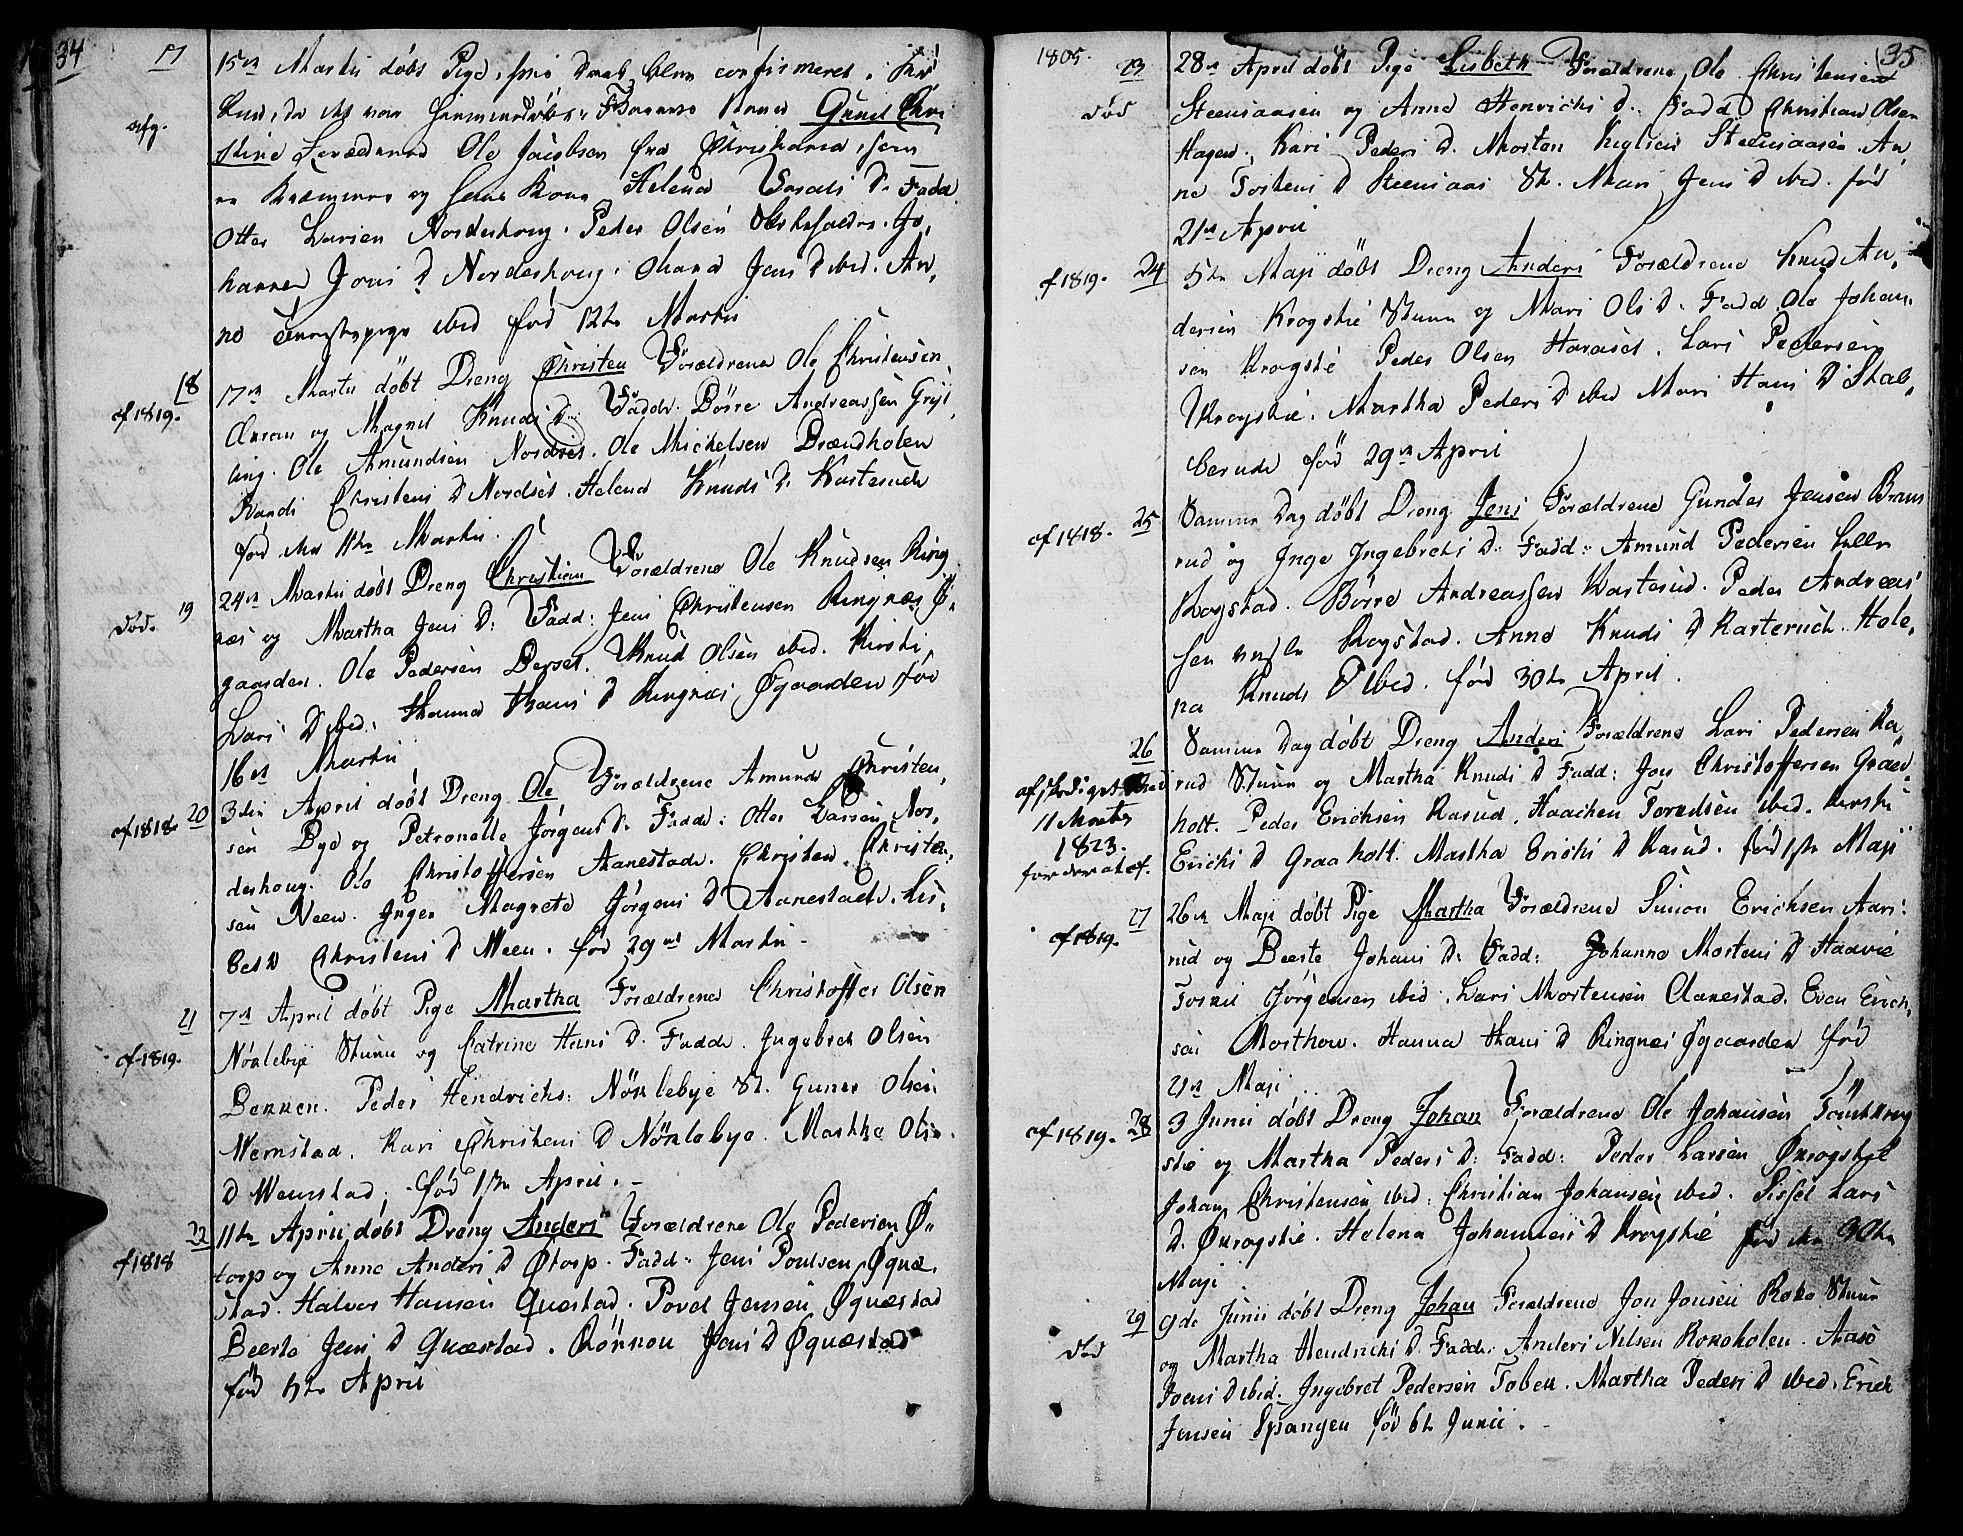 34
17
15de Martii døbt Pige, hvis Daab blev confirmeret i
afg. da det var hiemmedøbt Barnets Navn Gunel Chri
stine Forældrene Ole Jacobsen fra Christiania, som
er og hans Kone Helena D. Fadd.
Otter Larsen Norderhoug. Peder Olsen Jo,
hanna Jons D Norderhoug. Jens D ibid. An,
ne ibid fød 12te Martii
18 17de Martii døbt Dreng Christen Forældrene Ole Christensen
cf 1819. og Magnil Knuds D. Fadd. Börre Andreassen Gryt
ling. Ole Amundsen Nordset. Ole Michelsen Brændholen
Randi Christens D Nordset. Helena Knuds D. Kasterud
fød den 11te Martii.
24de Martii døbt Dreng Christian Forældrene Ole Knudsen Ring
død. 19 næs og Martha Jens D: Fadd: Jens Christensen Ringnæs Ø,
gaarden. Ole Pedersen Berset. Knud Olsen ibid. Kirsti
Lars D ibid. Hanna Hans D Ringnæs Øgaarden fød
16de Martii
20 3die April døbt Dreng Ole Forældrene Amund Christen,
cf 1818 sen Bye og Petronelle Jörgens D. Fadd: Otter Larsen Nor,
derhoug. Ole Christoffersen Aanestad. Christen Christen,
sen Neen. Inger Magrete Jörgens D Aanestad. Lis,
beth Christens D Neen. fød 29de Martii
21 7de April døbt Pige Martha Forældrene Christoffer Olsen
cf 1819. Nörlebye Stuen og Catrine Hans D. Fadd. Ingebret Olsen
Berger. Peder Hendrichs: Nörlebye St. Guner Olsen
Wernstad. Kari Christens D Nörlebye. Martha Ols
D Wernstad. fød 1ste April.
22 11te April døbt Dreng Anders Forældrene Ole Pedersen Ø
cf 1818 torp og Anne Anders D Øtorp. Fadd: Jens Poulsen Øquæ,
stad. Halvor Hansen Quæstad. Povel Jensen Øquæstad
Beerte Jens D Quæstad. Rönnou Jens D Øquæstad
fød 5te April
1805. 35
23 28de April døbt Pige Lisbeth Forældrene Ole Christensen
død Steensaasen og Anne Henrichs D. Fadd Christian Olsen
Hagen. Kari Peders D. Morten Steensaasen. An,
ne Tostens D Steensaas St. Mari Jens D ibid. fød
21de April
cf 1819. 24 5te Maji døbt Dreng Anders Forældrene Knud An,
dersen Krogstie Stuen og Mari Ols D. Fadd Ole Johan
sen Krogstie Peder Olsen Haraset. Lars Pedersen
Krogstie. Martha Peders D ibid Mari Hans D Skab,
berud fød 29de April
cf 1818. 25 Samme Dag døbt Dreng Jens Forældrene Gunder Jensen Bram
rud og Inge Ingebrets D: Fadd: Amund Pedersen
Rogstad. Börre Andreassen Kasterud. Peder Andreas
sen Rogstad. Anne Knuds D Kasterud. Hele,
na Knuds D ibid. fød 30te April.
26 Samme Dag døbt Dreng Anders Forældrene Lars Pedersen Ra,
afskediget rud Stuen og Martha Knuds D Fadd: Jon Christoffersen Graae
11 Martz holt. Peder Erichsen Rasud. Haachen Torendsen ibid. Kirsti
1823. Erichs D Graaholt. Martha Erichs D Rasud. fød 1ste Maji
27 26de Maji døbt Pige Martha Forældrene Simon Erichsen Aas
cf 1819. rud og Beerte Johans D: Fadd: Johanne Mortens D Haavie
Torkil Jörgensen ibid. Lars Mortensen Aanestad. Even Erich,
sen Morthow. Hanna Hans D Ringnæs Øgaarden fød
21de Maji
cf 1819. 28 3 Junii døbt Dreng Johan Forældrene Ole Johansen Tömtkrog
stie og Martha Peders D: Fadd: Peder Larsen Økrogstie
Johan Christensen ibid: Christian Johansen ibid. Sissel Lars
D. Økrogstie. Helena Johannes D Krogstie fød den 30te
Maji
29 9de Junii døbt Dreng Johan Forældrene Jon Jonsen Roko Stuen
død og Martha Hendrichs D. Fadd: Anders Nilsen Rokoholen. Aase
Joens D ibid. Ingebret Pedersen Toben. Martha Peders D ibid. Erich
Jensen Spangen fød 6te Junii.